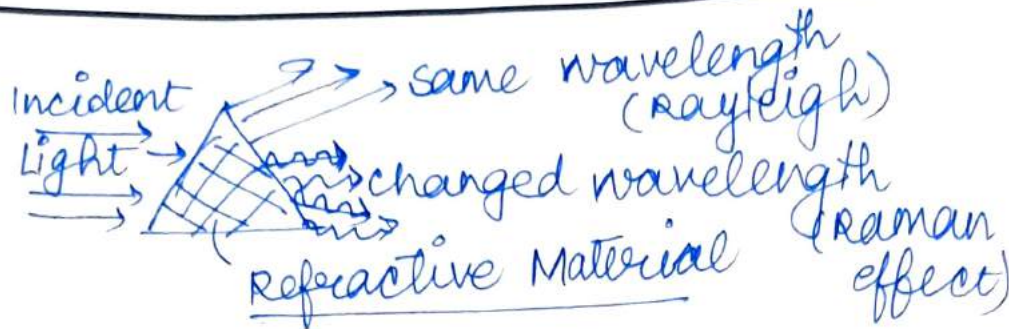 Incident
Light
same wavelength
(Rayleigh)
changed wavelength
(Raman
effect)
Refractive Material